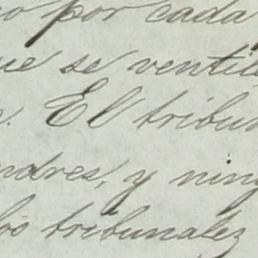 o por cada
ue se ventil
. El tribun
ndres, y ning
los tribunales